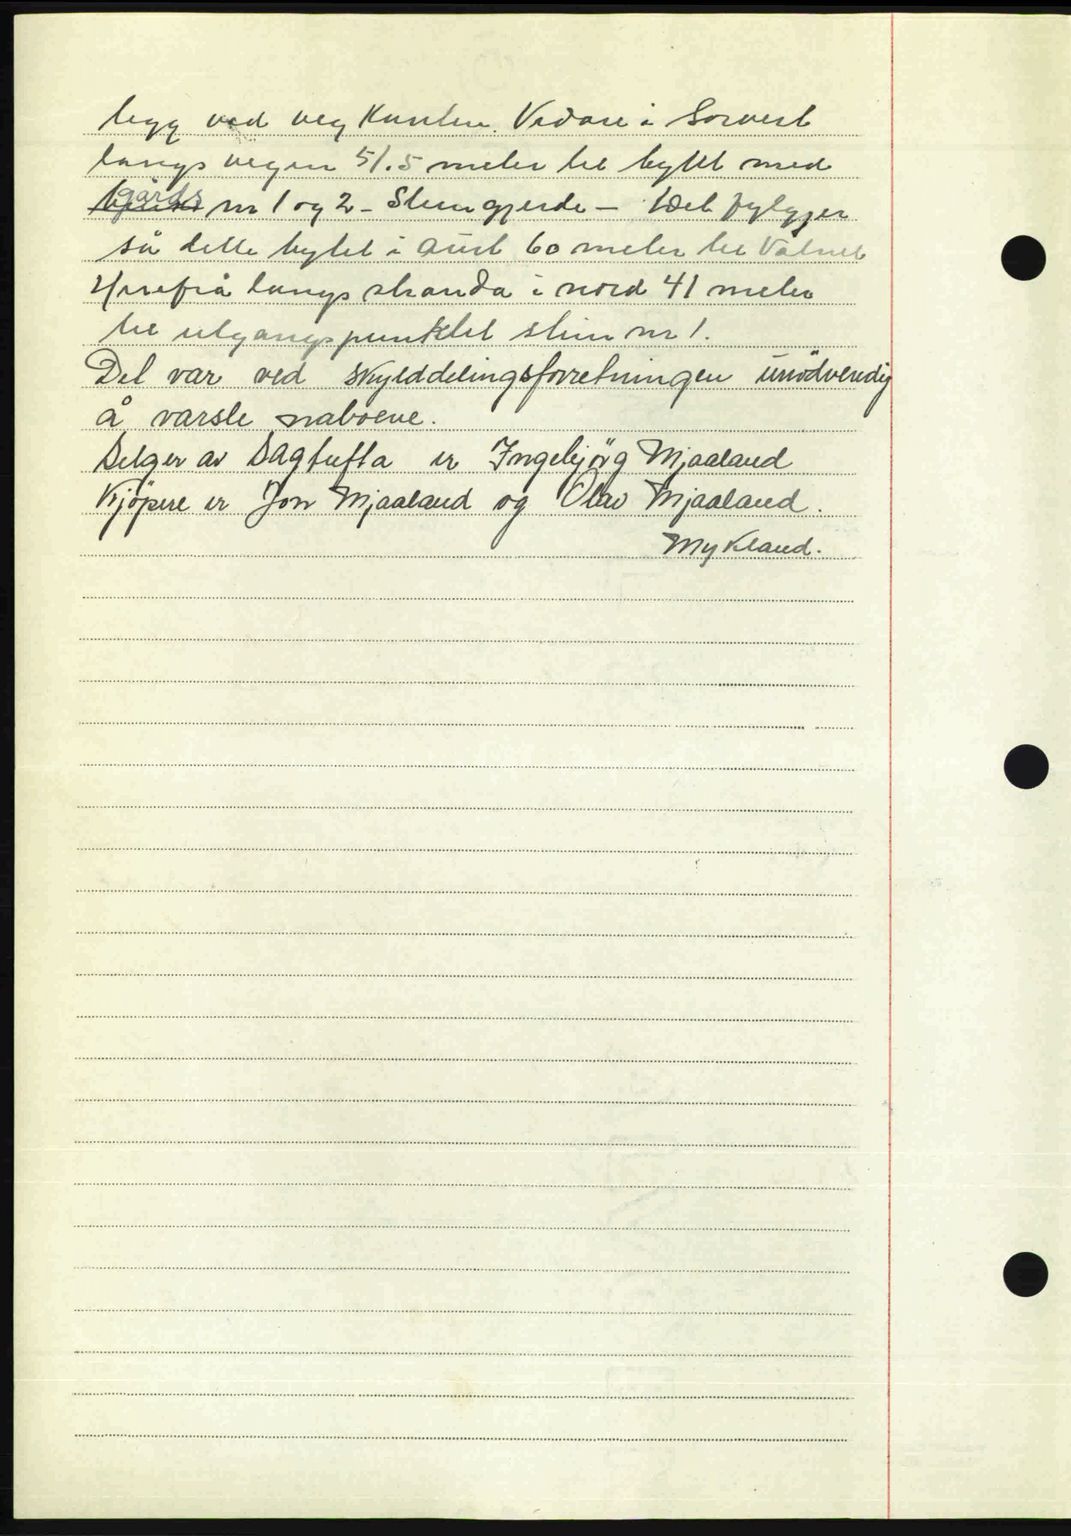 legg ved veg Kanten. Vidare i Sorvest
langs vegen 51.5 meter til bytet med
gårds nr 1 og 2 - Steingjerde - Det fylgjer
så dette bytet i aust 60 meter til Vatnet
Herfrå langs stranda i nord 41 meter
til utgangspunktet stein nr 1.
Det var ved skylddelingsforretningen unödvendig
å varsle naboene.
Selger av Dagtufta er Ingebjörg Mjaaland
Kjöpere er Jon Mjaaland og Olav Mjaaland.
Mykland.